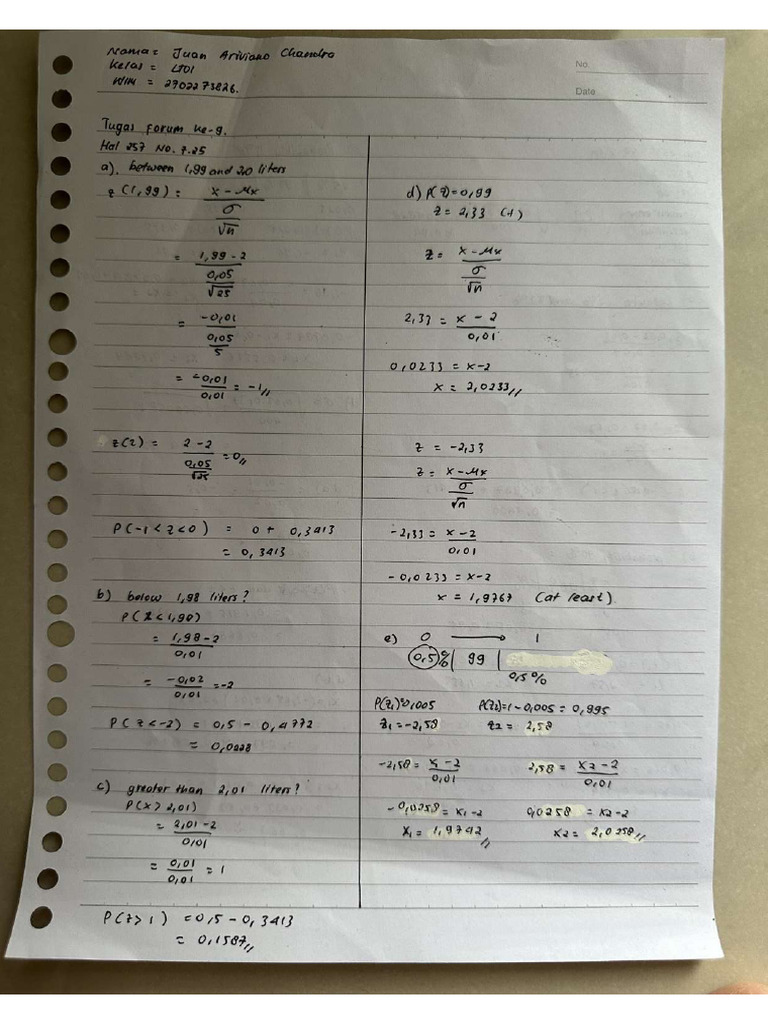 Nama = Juan Ariviano Chandra
Kelas = LJ01
NIM = 2902273826.
No.
Date
Tugas Forum ke-9.
Hal 257 No. 7.25
a). between 1,99 and 2,0 liters
z(1,99) = x - μx
σ
√n
= 1,99 - 2
0,05
√25
= -0,01
0,05
5
= -0,01 = -1 //
0,01
z(2) = 2 - 2 = 0 //
0,05
√25
P(-1 < z < 0) = 0 + 0,3413
= 0,3413
b) below 1,98 liters?
P(X < 1,98)
= 1,98 - 2
0,01
= -0,02 = -2
0,01
P(z < -2) = 0,5 - 0,4772
= 0,0228
c) greater than 2,01 liters?
P(X > 2,01)
= 2,01 - 2
0,01
= 0,01 = 1
0,01
P(z > 1) = 0,5 - 0,3413
= 0,1587 //
d) P(z) = 0,99
z = 2,33
z = x - μx
σ
√n
2,33 = x - 2
0,01
0,0233 = x - 2
x = 2,0233 //
z = -2,33
z = x - μx
σ
√n
-2,33 = x - 2
0,01
-0,0233 = x - 2
x = 1,9767 (at least)
e) 0 → 1
0,5% | 99 |
0,5%
P(z₁) = 0,005 P(z₂) = 1 - 0,005 = 0,995
z₁ = -2,58 z₂ = 2,58
-2,58 = x₁ - 2 2,58 = x₂ - 2
0,01 0,01
-0,0258 = x₁ - 2 0,0258 = x₂ - 2
x₁ = 1,9742 // x₂ = 2,0258 //